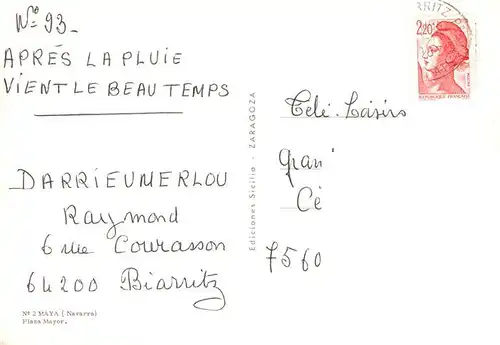 Nº 93_
APRÈS LA PLUIE
VIENT LE BEAU TEMPS
DARRIEUMERLOU
Raymond
6 rue Courasson
64200 Biarritz
Nº 2 MAYA ( Navarra)
Plaza Mayor.
Ediciones Sicilia - ZARAGOZA
RRITZ
2,20
REPUBLIQUE FRANÇAISE
Télé-Loisirs
Gran'
Cé
7560